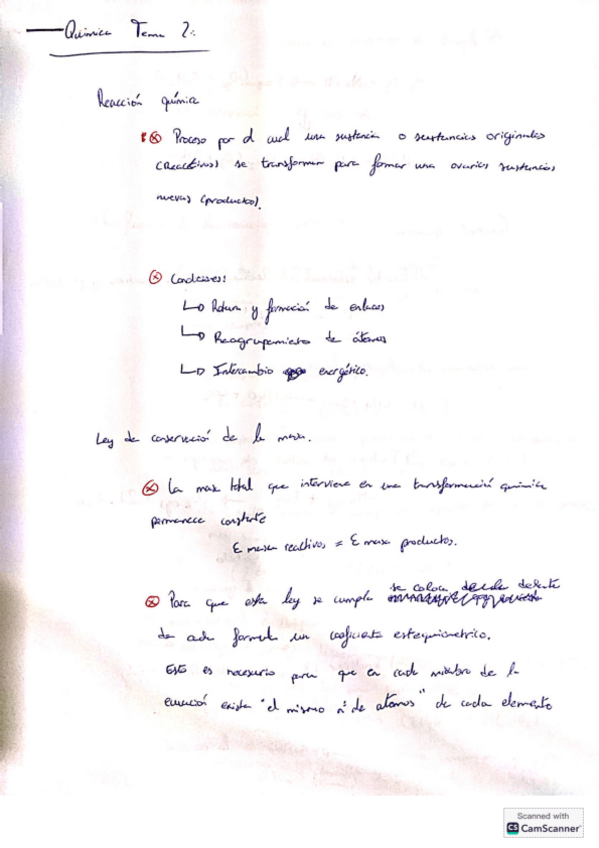 Química Tema 2:
Reacción química
Proceso por el cual una sustancia o sustancias originales
(reactivos) se transforman para formar una o varias sustancias
nuevas (productos).
Condiciones:
Rotura y formación de enlaces
Reagrupamiento de átomos
Intercambio energético.
Ley de conservació de la masa.
La masa total que interviene en una transformació química
permanece constante
Σ masa reactivos = Σ masa productos.
Para que esta ley se cumpla se coloca delante
de cada formula un coeficiente estequiometrico.
Esto es necesario para que en cada miembro de la
ecuación exista "el mismo nº de atomos" de cada elemento
Scanned with
CS CamScanner